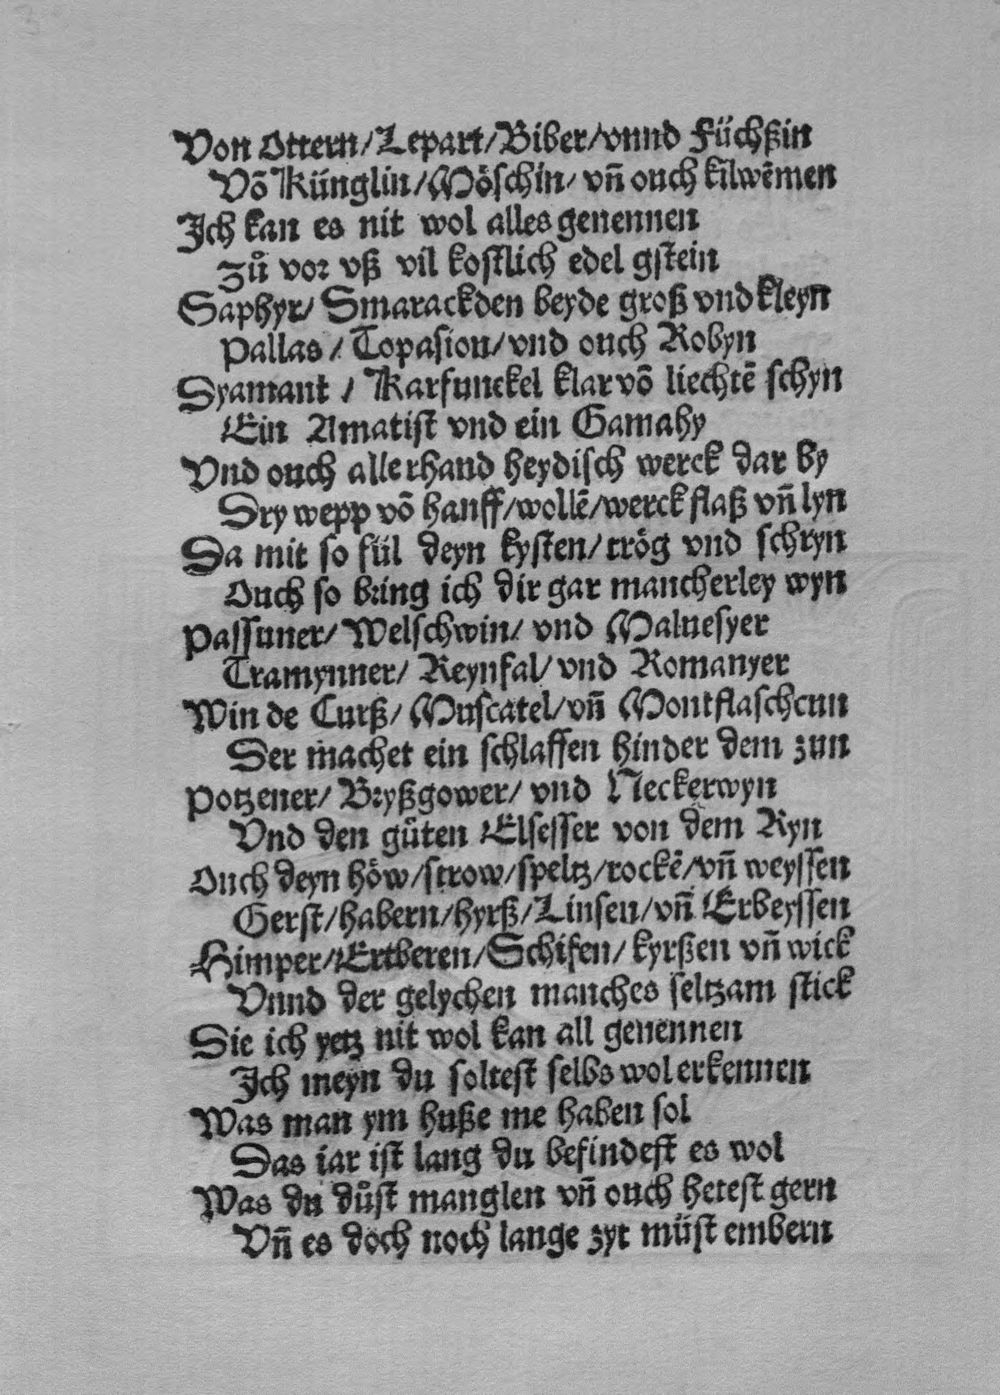 Von Ottern/Lepart/Biber/vnnd Füchßin
Võ Künglin/Möschin/ vñ ouch kilwẽmen
Ich kan es nit wol alles genennen
Zů vor vß vil kostlich edel gstein
Saphyr/ Smarackden beyde groß vnd kleyn
Pallas / Topasion/vnd ouch Robyn
Dyamant / Karfunckel klar võ liechtẽ schyn
Ein Amatist vnd ein Gamahy
Vnd ouch allerhand heydisch werck dar by
Dry wepp võ hanff/wollẽ/werck flaß vñ lyn
Da mit so fül deyn kysten/trög vnd schryn
Ouch so bring ich dir gar mancherley wyn
Passuner/ Welschwin/ vnd Maluesyer
Tramynner/ Reynfal/ vnd Romanyer
Win de Curß/ Muscatel/vñ Montflaschcun
Der machet ein schlaffen hinder dem zun
Potzener/ Bryßgower/ vnd Neckerwyn
Vnd den gůten Elsesser von dem Ryn
Ouch deyn höw/strow/speltz/rockẽ/vñ weyssen
Gerst/habern/hyrß/Linsen/vñ Erbeyssen
Himper/Ertberen/Schifen/ kyrßen vñ wick
Vnnd der gelychen manches seltzam stick
Die ich yetz nit wol kan all genennen
Ich meyn du soltest selbs wol erkennen
Was man ym huße me haben sol
Das iar ist lang du befindest es wol
Was du důst manglen vñ ouch hetest gern
Vñ es doch noch lange zyt müst embern